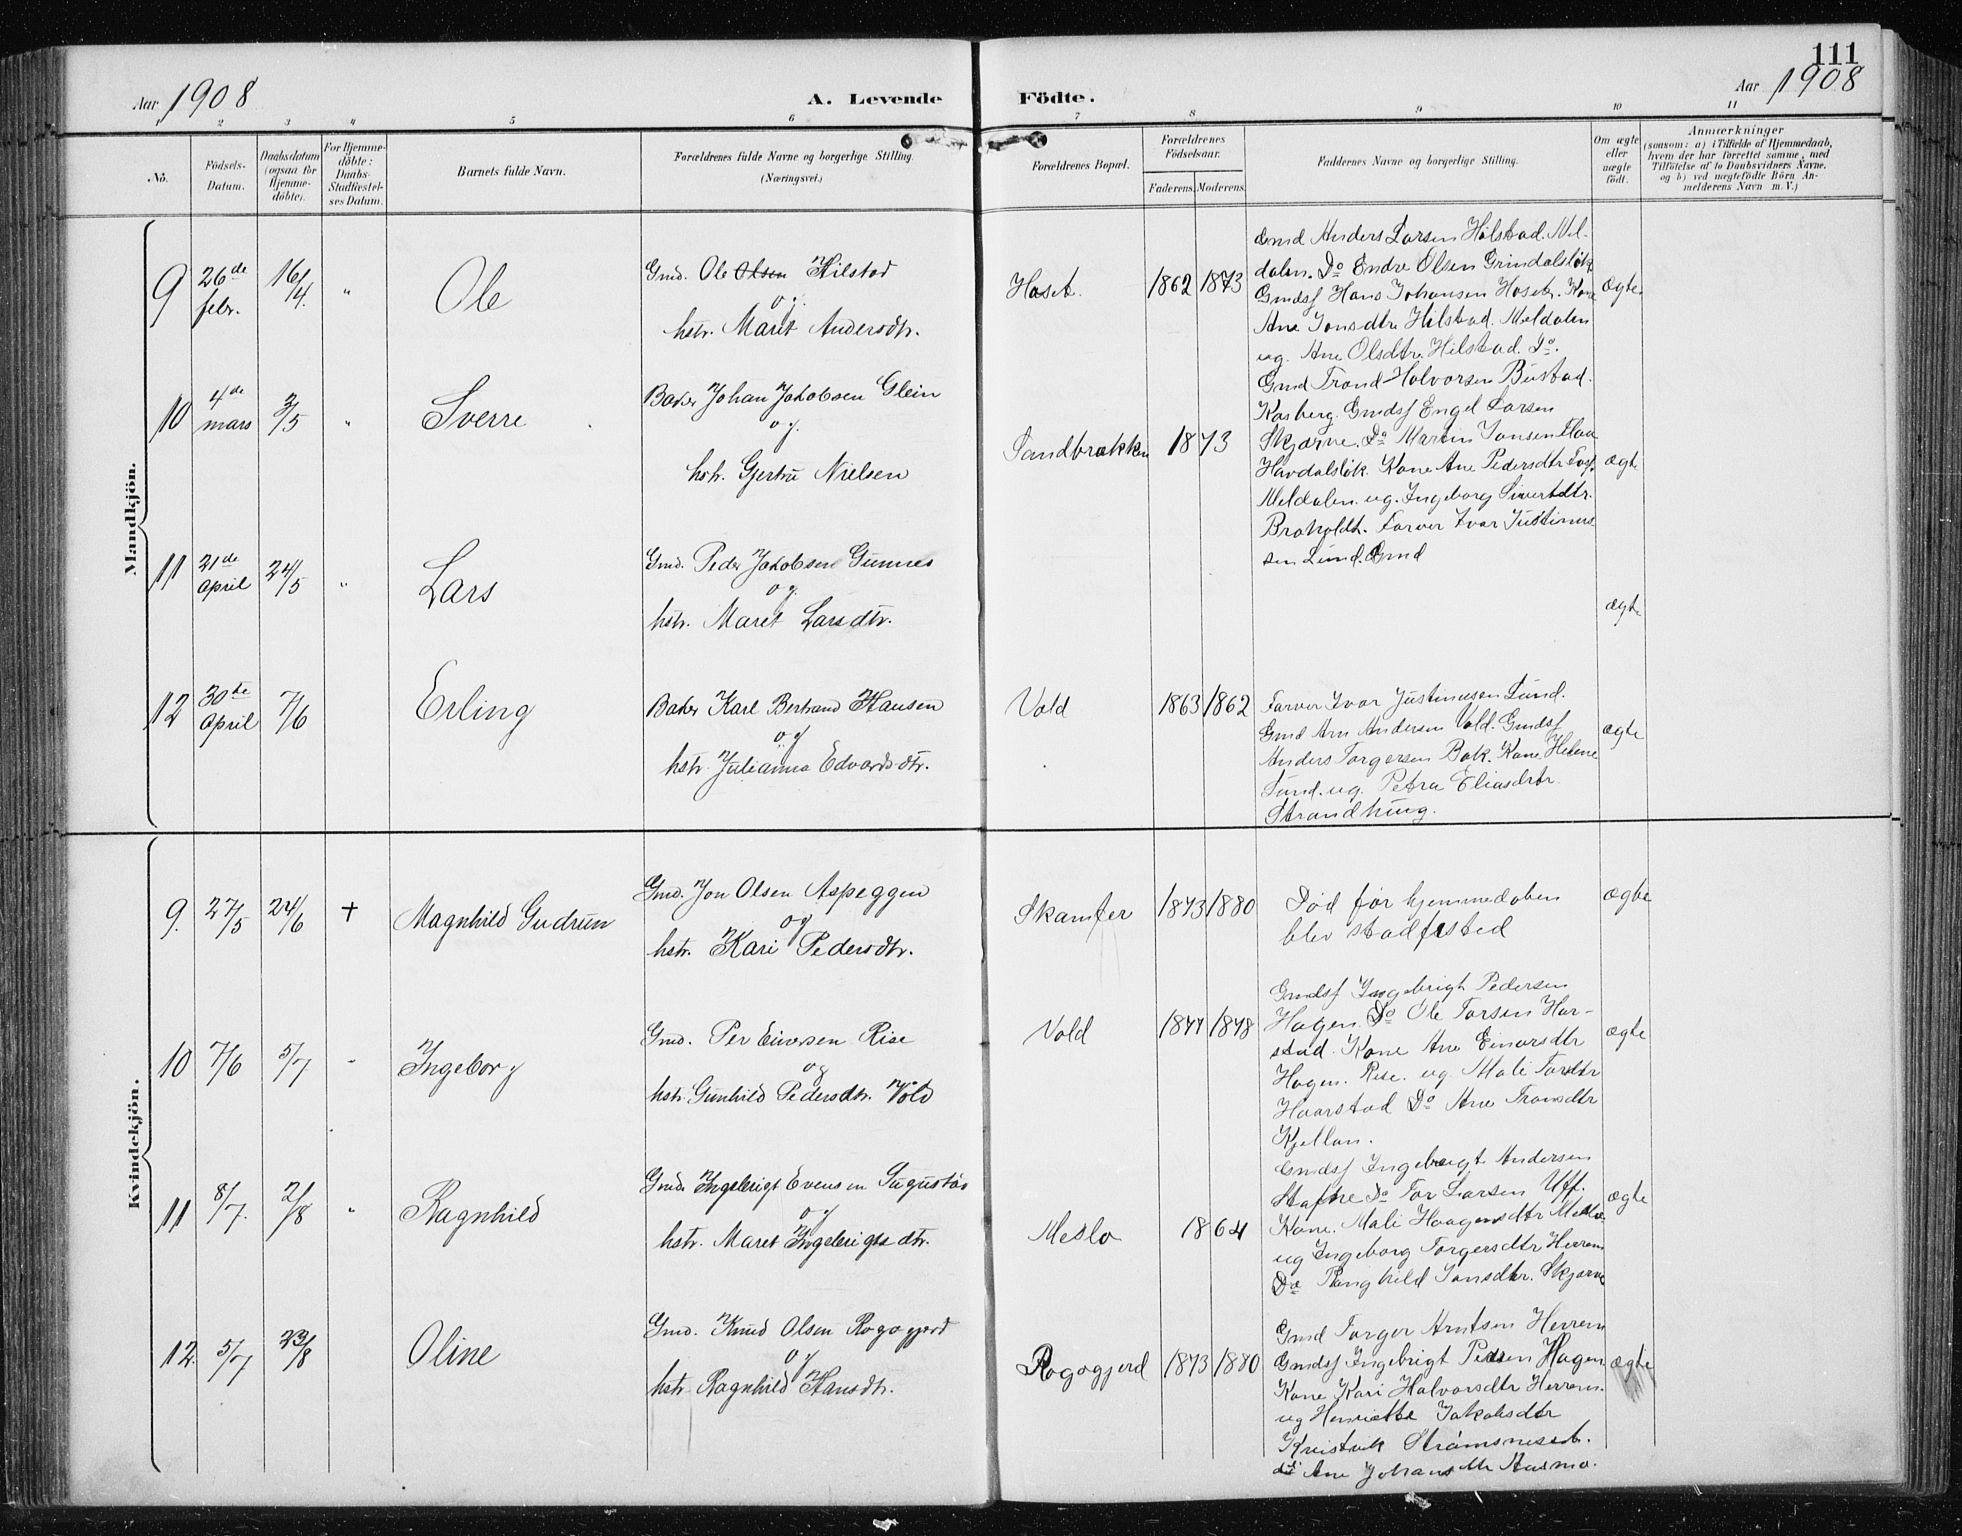 111
Aar 1908
A. Levende
Födte.
Aar 1908
1 2 3 4 5 6 7 8 9 10 11
No.
Födsels-
Datum.
Daabsdatum
(ogsaa for
Hjemme-
döbte).
For Hjemme-
döbte:
Daabs-
Stadfæstel-
ses Datum.
Barnets fulde Navn.
Forældrenes fulde Navne og borgerlige Stilling.
(Næringsvei.)
Forældrenes Bopæl.
Forældrenes
Födselsaar.
Faderens. Moderens.
Faddernes Navne og borgerlige Stilling.
Om ægte
eller
uægte
födt.
Anmærkninger
(saasom: a) i Tilfælde af Hjemmedaab,
hvem der har forrettet samme, med
Tilföielse af to Daabsvidners Navne.
og b) ved uægtefödte Börn An-
melderens Navn m. V.)
Mandkjön.
9 26de febr. 16/4. " Ole
Gmd. Ole Olsen Hilstad
og
hstr. Maret Andersdtr.
Hoset. 1862 1873
Gmd Anders Larsen Hilstad. Mel-
dalen. Do Endre Olsen Grindalsløk
Gmdsf Hans Johansen Hoset. Kone
Ane Jonsdtr Hilstad. Meldalen
ug. Ane Olsdtr. Hilstad. Do.
ægte
10 4de mars 3/5 " Sverre
Baker Johan Jakobsen Glein
og
hstr. Gjertru Nielsen
Sandbrækken 1873
Gmd Trond Halvorsen Bustad.
Kasberg. Gmdsf Engel Larsen
Skjørve. Do Martin Jonsen Flaa
Havdalsløk. Kone Ane Pedersdtr
Meldalen. ug. Ingeborg Sivertdtr.
Braholdt. Farver Ivar Justinus
sen Lund. Gmd
ægte
11 21de April 24/5 " Lars
Gmd. Peder Jakobsen Gunnes
og
hstr. Maret Larsdtr.
ægte
12 30te April 7/6 Erling
Baker Karl Bertrand Hansen
og
hstr. Julianna Edvardsdtr.
Vold 1863 1862
Farver Ivar Justinusen Lund.
Gmd Arn Andersen Vold. Gmdsf
Anders Torgersen Bak. Kone Helene
Lund. ug. Petra Eliasdtr.
Strandhaug.
ægte
Kvindekjön.
9. 27/5 24/6 + Magnhild Gudrun
Gmd. Jon Olsen Aspeggen
og
hstr. Kari Pedersdtr.
Skamfer 1873 1880
Död før hjemmedaben
blev stadfæsted
ægte
10 7/6 5/7 " Ingeborg
Gmd. Per Einersen Rise
og
hstr. Gunhild Pedersdtr. Vold
Vold 1877 1878
Gmdsf Ingebrigt Pedersen
Hagen. Do Ole Torsen Har-
stad. Kone Ane Einarsdtr
Hagen. Rise. ug. Mali Torsdtr
Haarstad Do Ane Tronsdtr
Kjellan.
ægte
11 8/7. 2/8 " Ragnhild
Gmd. Ingebrigt Evensen
og
hstr. Maret Ingebrigtsdtr.
Meslo 1864
Gmdsf Ingebrigt Andersen
Stafne Do Tor Larsen Uff.
Kone. Mali Haagensdtr Meslo
ug Ingeborg Torgersdtr Herrem
Do Ranghild Jonsdtr. Skjørve
ægte
12. 5/7 23/8 Oline
Gmd. Knud Olsen Rogogjerd
og
hstr Ragnhild Hansdtr.
Rogogjerd 1873 1880
Gmd Torger Arntsen Herrem
Gmdsf Ingebrigt Hagen
Kone Kari Halvorsdtr Herrem.
ug Henriette Jakobsdtr
Kristvik Strömsneset.
Ane Johansdtr Aasmo.
ægte